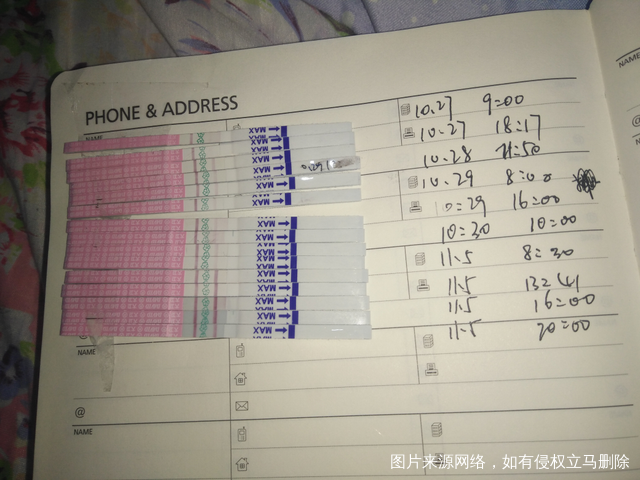 PHONE & ADDRESS
NAME
10.27 9=00
10.27 18:17
10.28
10.29 8=00
10=29 16=00
10=30 10=00
11.5 8=30
11.5 13=41
11.5 16=00
11.5 20=00
MAX
MAX
MAX
MAX
MAX
MAX
MAX
MAX
MAX
MAX
MAX
NAME
@
NAME
NAME
@
图片来源网络，如有侵权立马删除